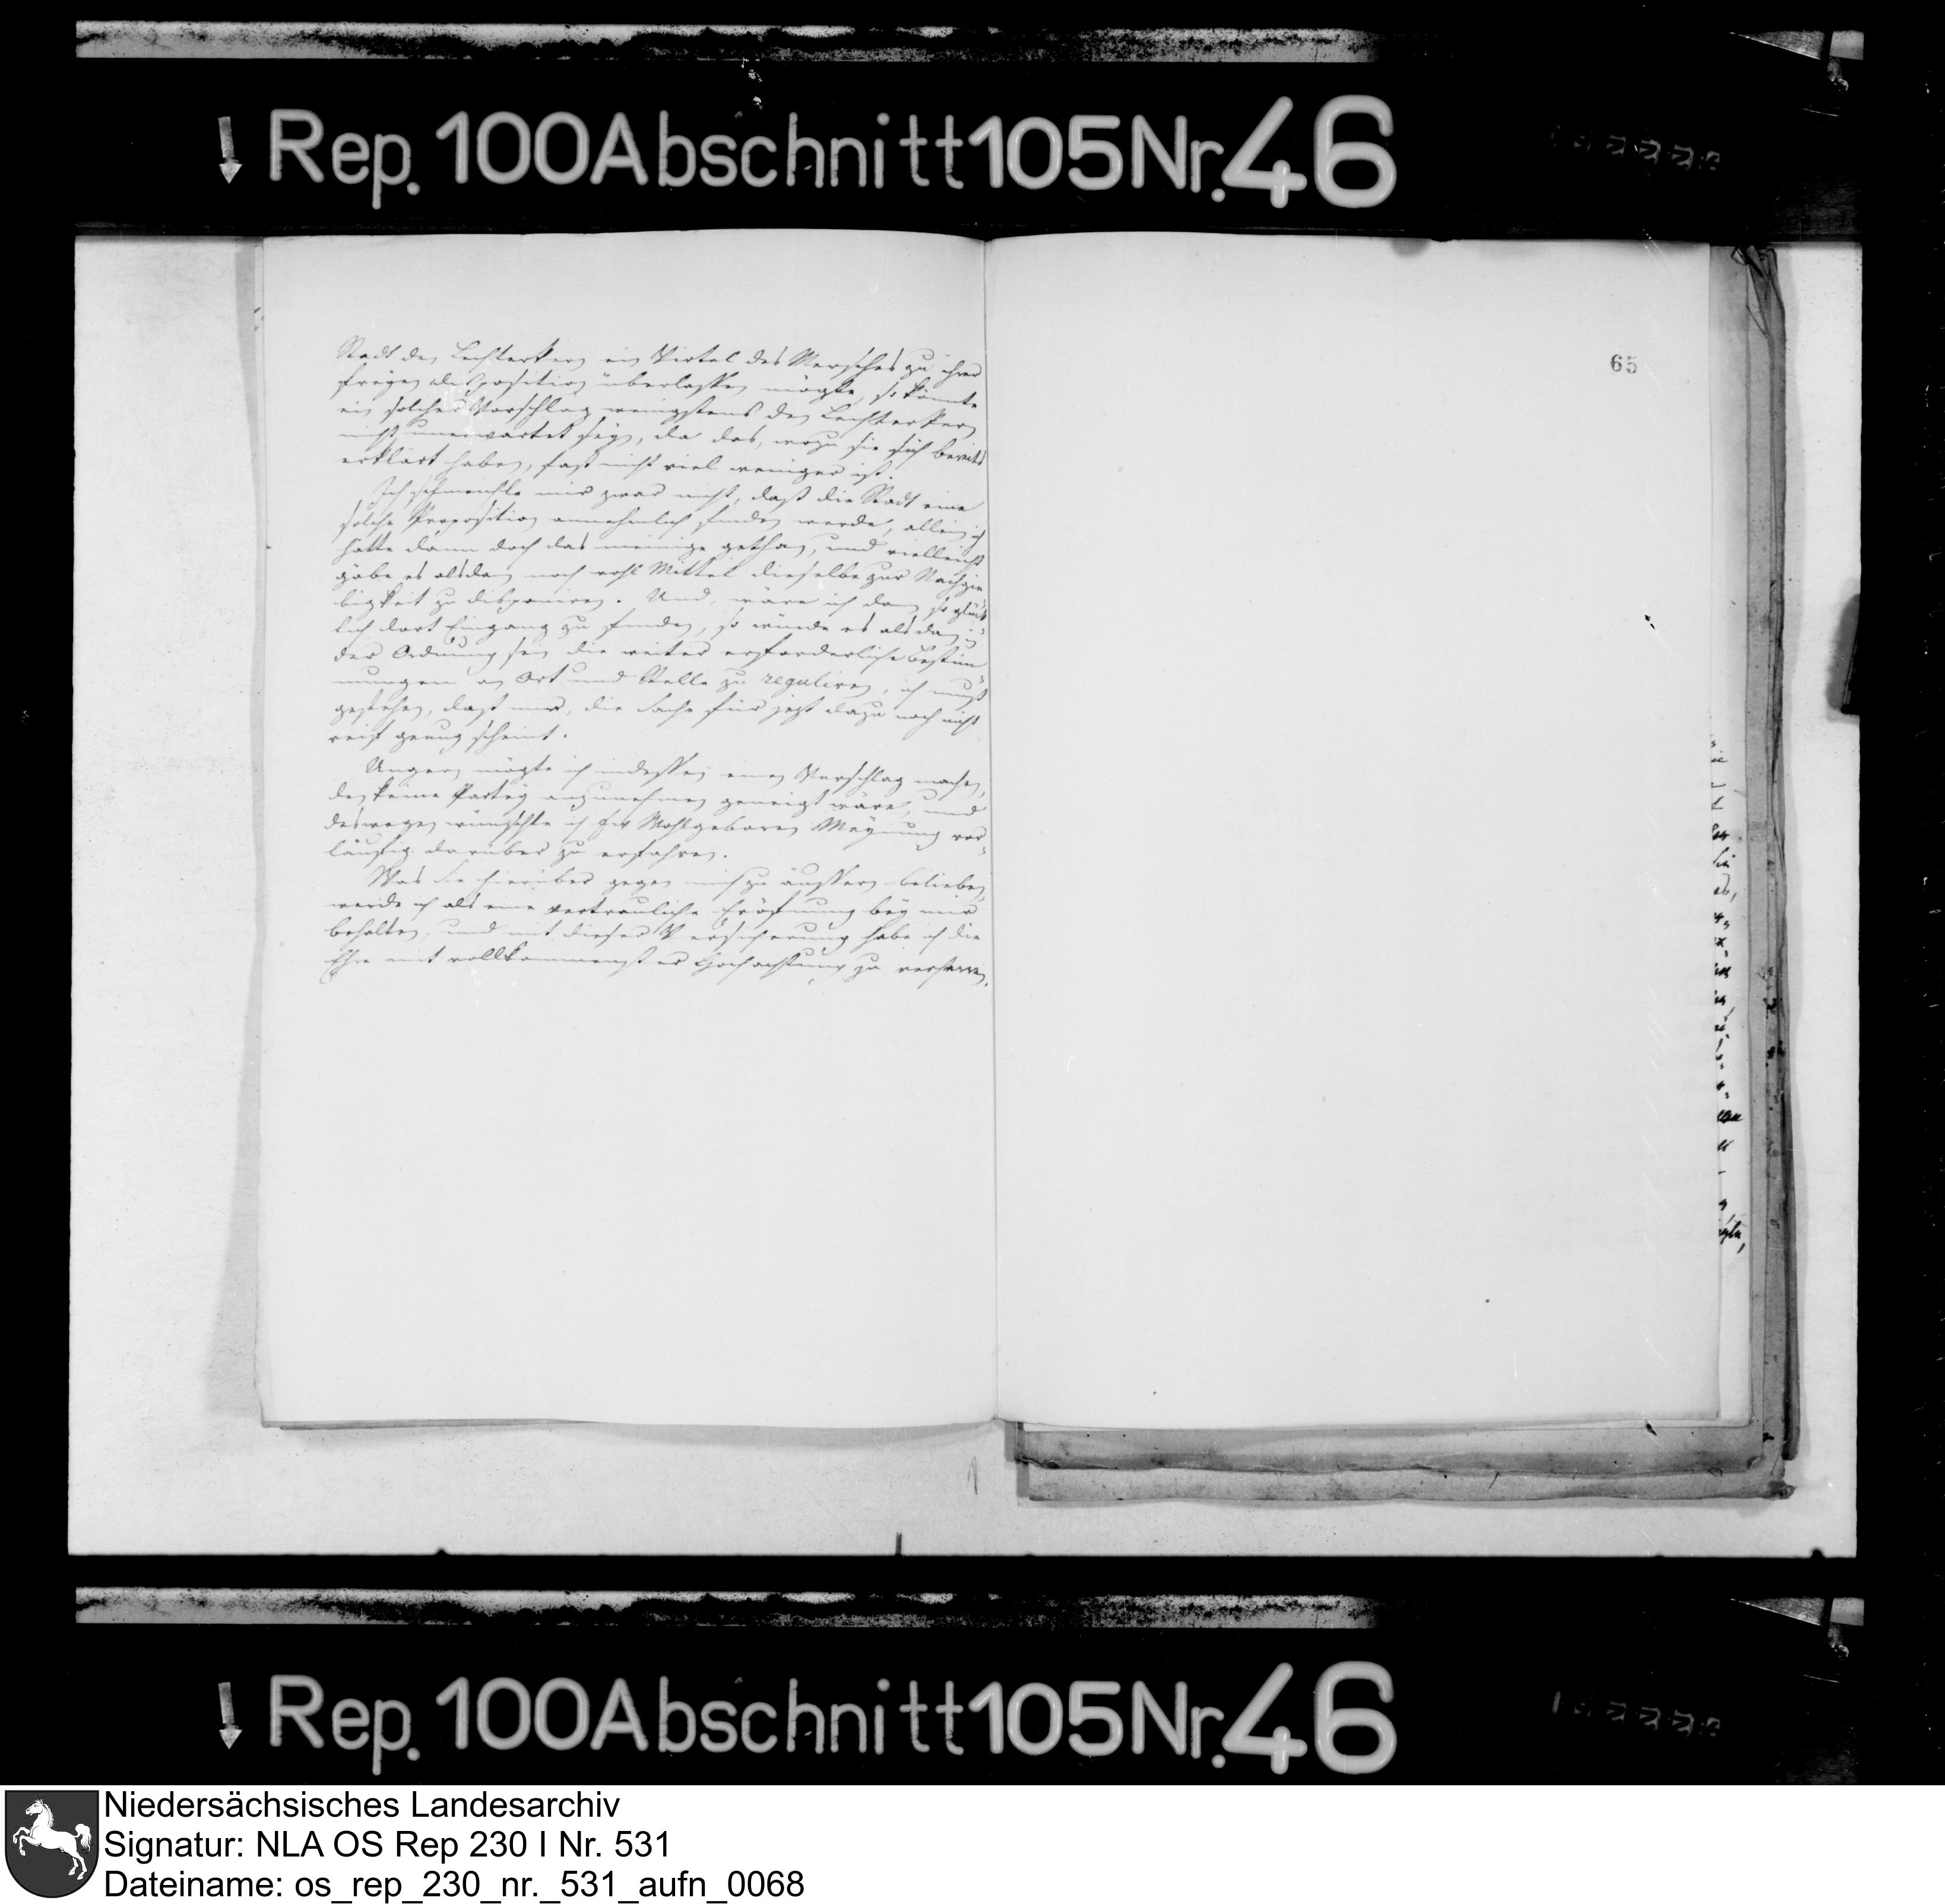 Rep. 100 Abschnitt 105 Nr. 46
65
Stadt den Lechterkern ein Virtel des Mersches zu ihrer
freyen disposition überlassen mögte, so könnte
ein solcher Vorschlag wenigstens den Lechterkern
nicht unerwartet seyn, da das, wozu sie sich bereits
erklärt haben, fast nicht viel weniger ist.
Ich schmeichle mir zwar nicht, daß die Stadt eine
solche Proposition annehmlich finden werde, allein ich
hätte dann doch das meinige gethan, und vielleicht
gäbe es alsdan noch wohl Mittel dieselbe zur Nachgie
bigkeit zu disponiren. Und, wäre ich dan so glück
lich dort Eingang zu finden, so würde es alsdan in
der Ordnung sein die weiter erforderliche Bestim
mungen an Ort und Stelle zu reguliren, ich muß
gestehen, daß mir, die Sache für jezt dazu noch nicht
reif genug scheint.
Ungern mögte ich indessen einen Vorschlag machen,
den keine Partey anzunehmen geneigt wäre, und
deswegen wünschte ich Ew Wohlgeboren Meynung vor=
läufig darüber zu erfahren.
Was Sie hierüber gegen mich zu äussern belieben,
werde ich als eine vertrauliche Eröfnung bey mir
behalten, und mit dieser Versicherung habe ich die
Ehre mit vollkommenster Hochachtung zu verharren.
Rep. 100 Abschnitt 105 Nr. 46
Niedersächsisches Landesarchiv
Signatur: NLA OS Rep 230 I Nr. 531
Dateiname: os_rep_230_nr._531_aufn_0068